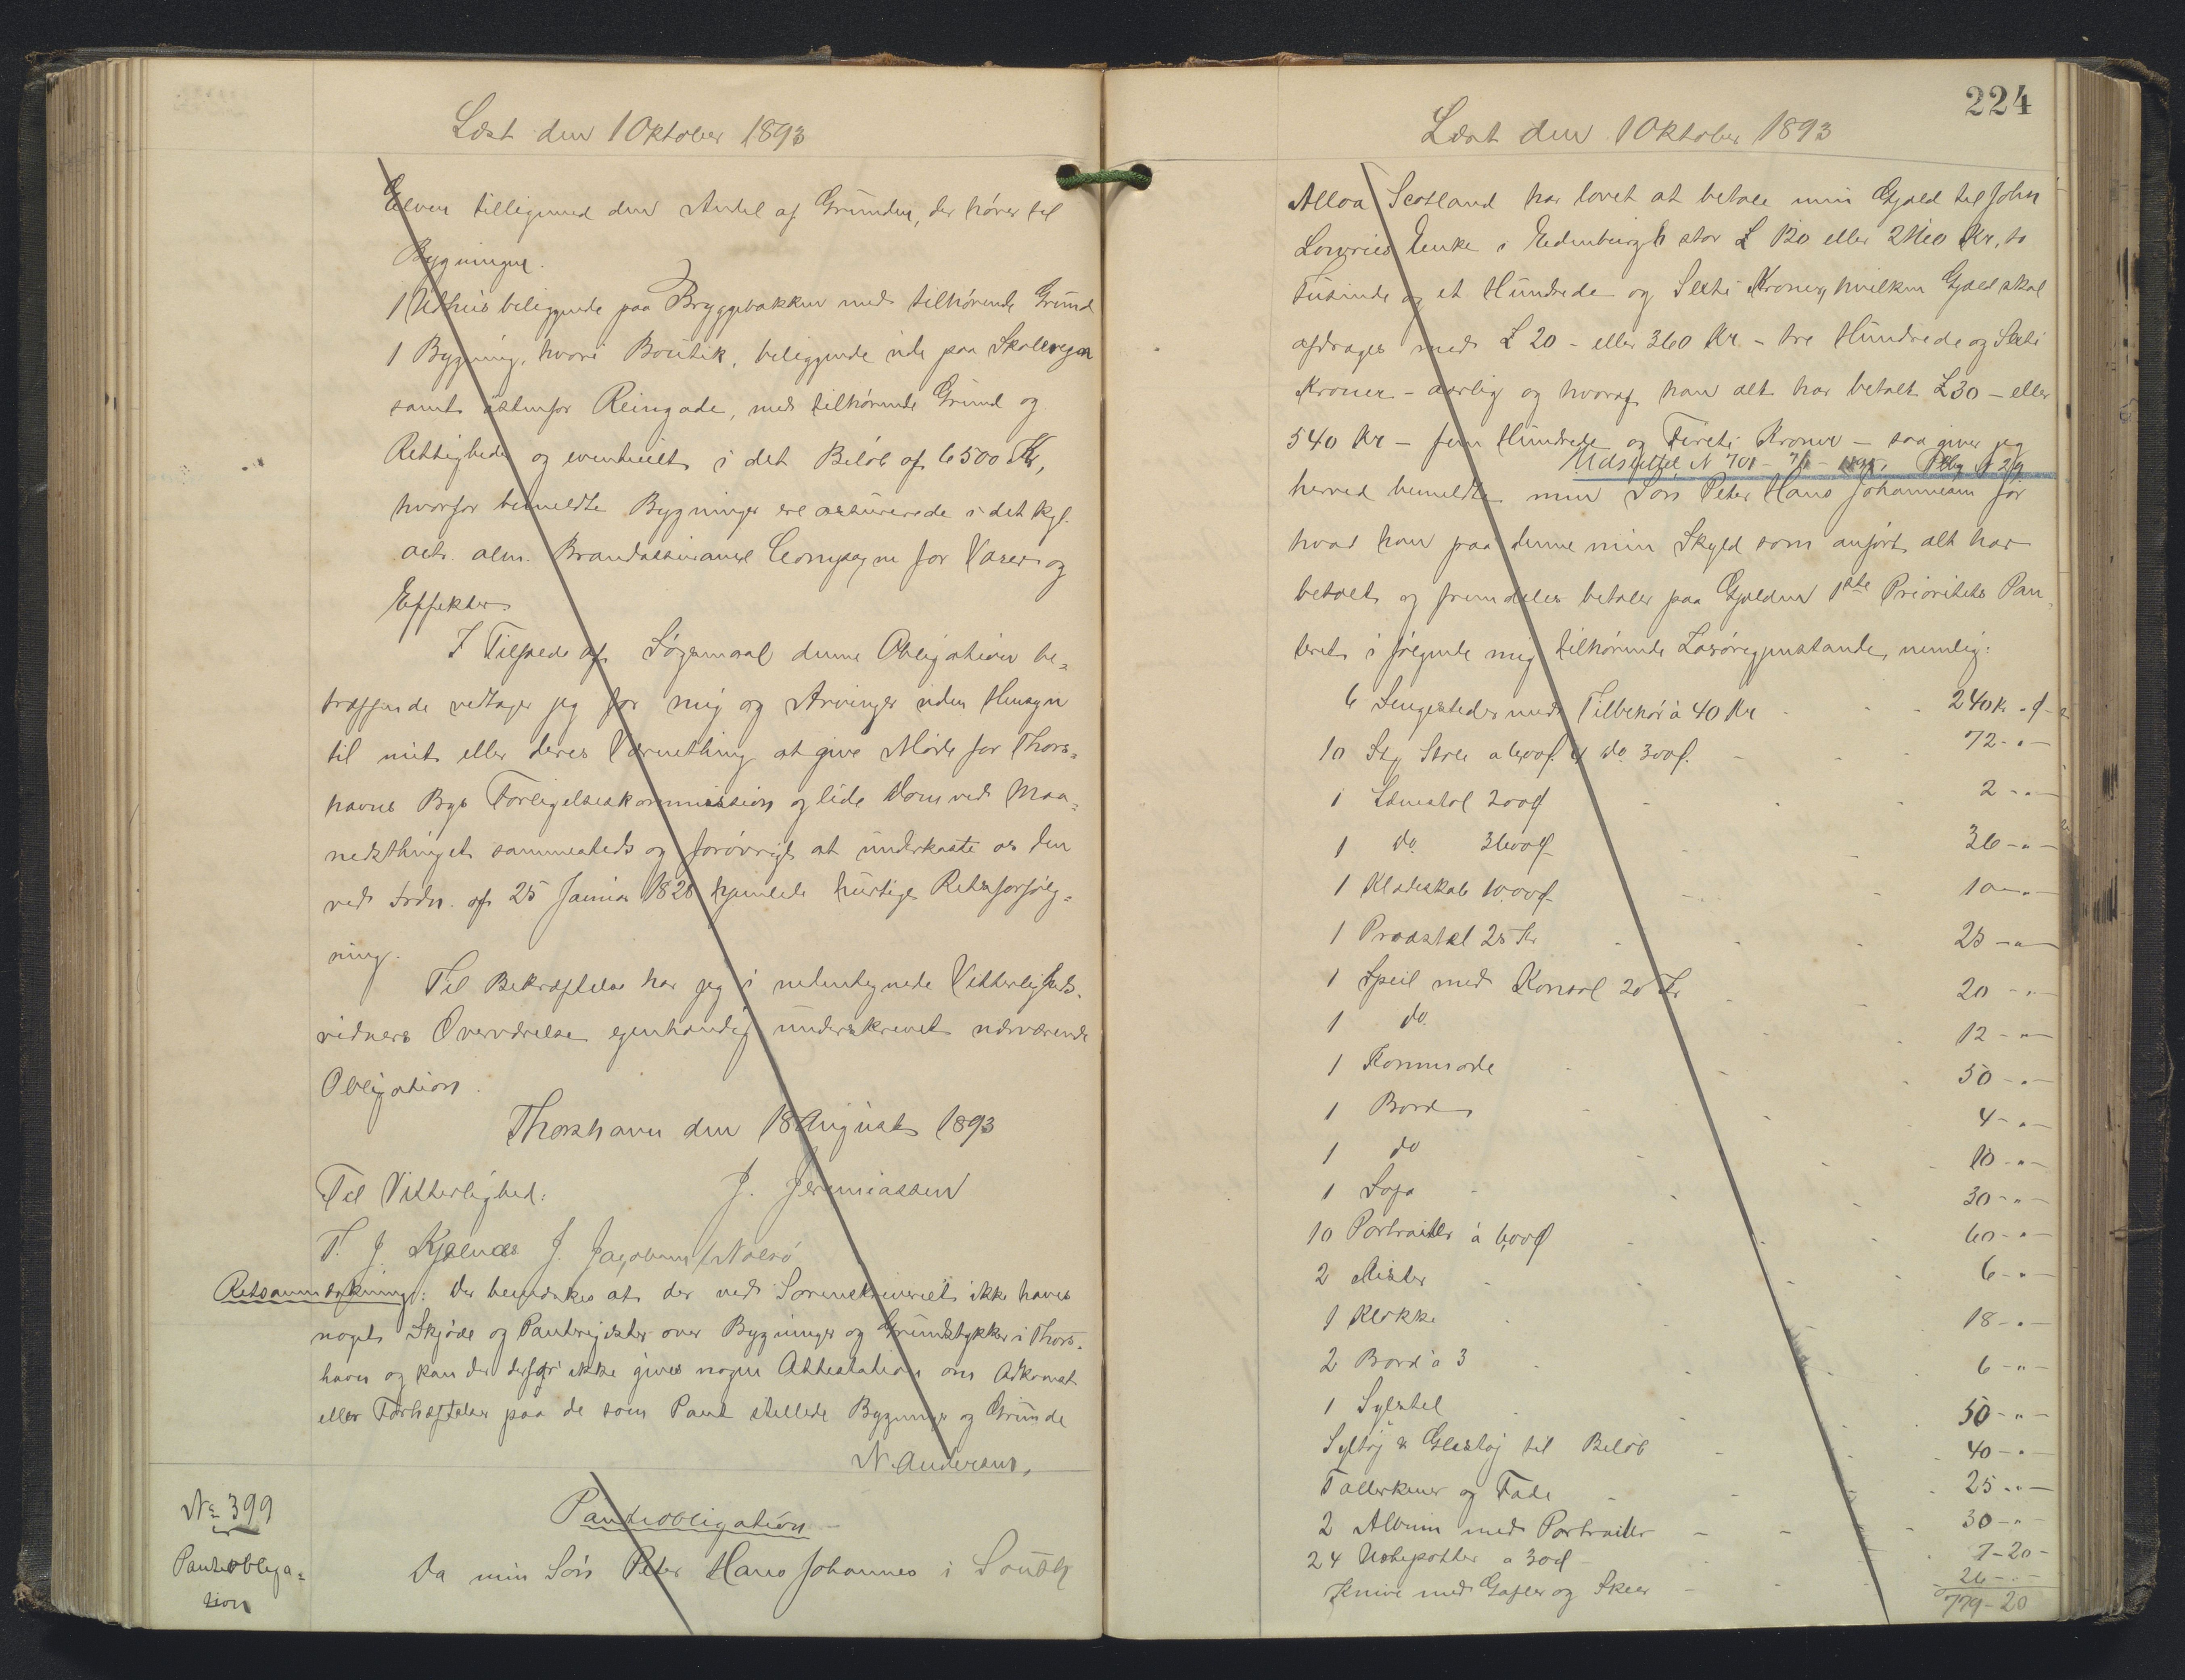 Læst den 1 Oktober 1893
Elven tilligemed den Andel af Grunden, der hører til
Bygningen.
1 Udhus beliggende paa Bryggebakken med tilhørende Grund
1 Bygning, hvori Boutik, beliggende ude paa Skolevegen
samt østenfor Reingade, med tilhørende Grund og
Rettigheder og eventuelt i det Beløb af 6500 Kr,
hvorfor bemeldte Bygninger ere assurerede i det kgl.
octr. alm. Brandassurance Compagni for Varer og
Effekter
I Tilfælde af Søgsmaal denne Obligation be=
træffende vedtager jeg for mig og Arvinger uden Hensyn
til mit eller deres Værnething at give Møde for Thors=
havns Bys Forligelseskommission og lide Dom ved Maa=
nedsthinget sammesteds og forøvrigt at underkaste os den
ved Frdn. af 25 Januar 1828 hjemlede hurtige Retsforfølg=
ning.
Til Bekræftelse har jeg i nedentegnede Vitterligheds=
vidners Overværelse egenhændig underskrevet nærværende
Obligation.
Thorshavn den 18 August 1893
Til Vitterlighed: J. Jeremiassen
T. J. Kjølnæs J. Jacobsen/Nolsø
Retsanmærkning: Der bemærkes at der ved Sorenskriveriet ikke haves
noget Skjøde og Panteregister over Bygninger og Grundstykker i Thors=
havn og kan der derfor ikke gives nogen Attestation om Adkomst
eller Forhæftelser paa de som Pant stillede Bygninger og Grunde
N. Andersen,
No 399
Pantobliga=
tion
Pantobligation
Da min Søn Peter Hans Johannes i South
224
Læst den 1 Oktober 1893
Alloa Scotland har lovet at betale min Gjæld til John
Lowries Enke i Edinburgh stor £ 120 eller 2160 Kr, to
Tusinde og et Hundrede og Sexti Kroner, hvilken Gjæld skal
afdrages med £ 20 - eller 360 Kr - tre Hundrede og Sexti
Kroner - aarlig og hvoraf han alt har betalt £30 - eller
540 Kr - fem Hundrede og Fireti Kroner - saa giver jeg
Udslettet N 701
herved bemeldte min Søn Peter Hans Johannesen for
hvad han paa denne min Skyld som anført alt har
betalt og fremdeles betaler paa Gjælden 1ste Prioritets Pan=
teret i følgende mig tilhørende Løsøregjenstande, nemlig:
6 Sengesteder med Tilbehør à 40 Kr 240 Kr
10 Stk Stole a 600 Ø 4 do. 300 Ø. 72 - " -
1 Lænestol 200 Ø 2 - " -
1 do 3600 Ø 36 - " -
1 Klædeskab 10.00 Ø 10 - " -
1 25 Kr 25 - " -
1 Speil med Konsol 20 Kr 20 - " -
1 do. 12 - " -
1 Kommode 50 - " -
1 Bord 4 - " -
1 do 10 - " -
1 Sofa 30 - " -
10 Portraiter à 600 Ø 60 - " -
2 Kister 6 - " -
1 Klokke 18 - " -
2 Bord a 3 6 - " -
1 50 - " -
Glastøj til Beløb 40 - " -
Tallerkener og Fade 25 - " -
2 Album med Portraiter 30 - " -
24 a 30 Ø 7 - 20 -
Knive med Gafler og Skeer 26 - " -
779 - 20